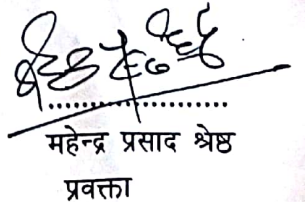 महेन्द्र प्रसाद श्रेष्ठ
प्रवक्ता